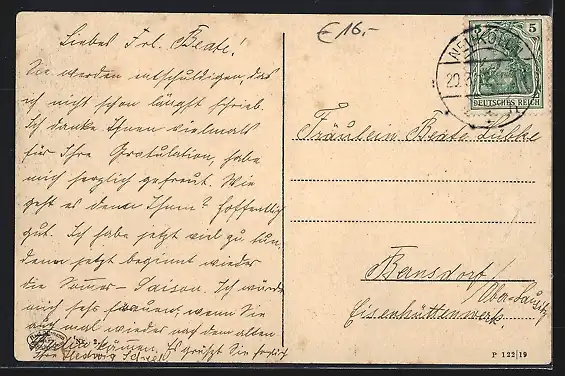 Liebes Frl. Beate!
Sie werden entschuldigen, das
ich nicht schon längst schrieb.
Ich danke Ihnen vielmals
für Ihre Gratulation, habe
mich herzlich gefreut. Wie
geht es denn Ihnen? Hoffentlich
gut. Ich habe jetzt viel zu tun,
denn jetzt beginnt wieder
die Saison. Ich würde
mich sehr freuen, wenn Sie
mal wieder nach dem alten
kommen. Es grüßt Sie herzlich
Ihre Hedwig
€ 16,-
NEUKÖLLN
20
5
DEUTSCHES REICH
Fräulein Beate Lülcke
Bernsdorf
Ober-Lausitz
Eisenhüttenwerk
P 122/19